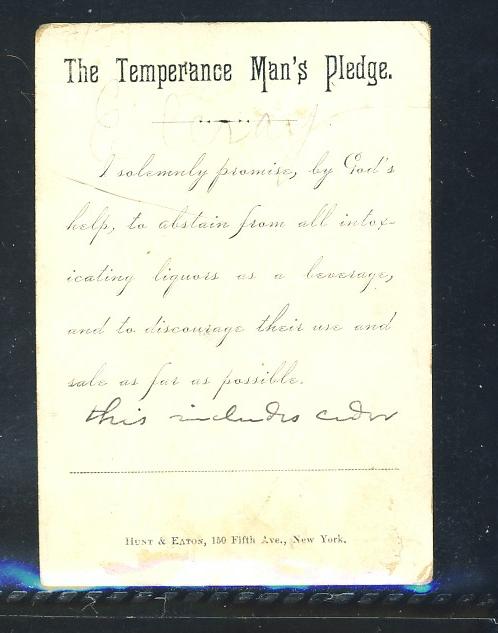 The Temperance Man's Pledge.
I solemnly promise, by God's
help, to abstain from all intox-
icating liquors as a beverage,
and to discourage their use and
sale as far as possible.
this includes cider
HUNT & EATON, 150 Fifth Ave., New York.